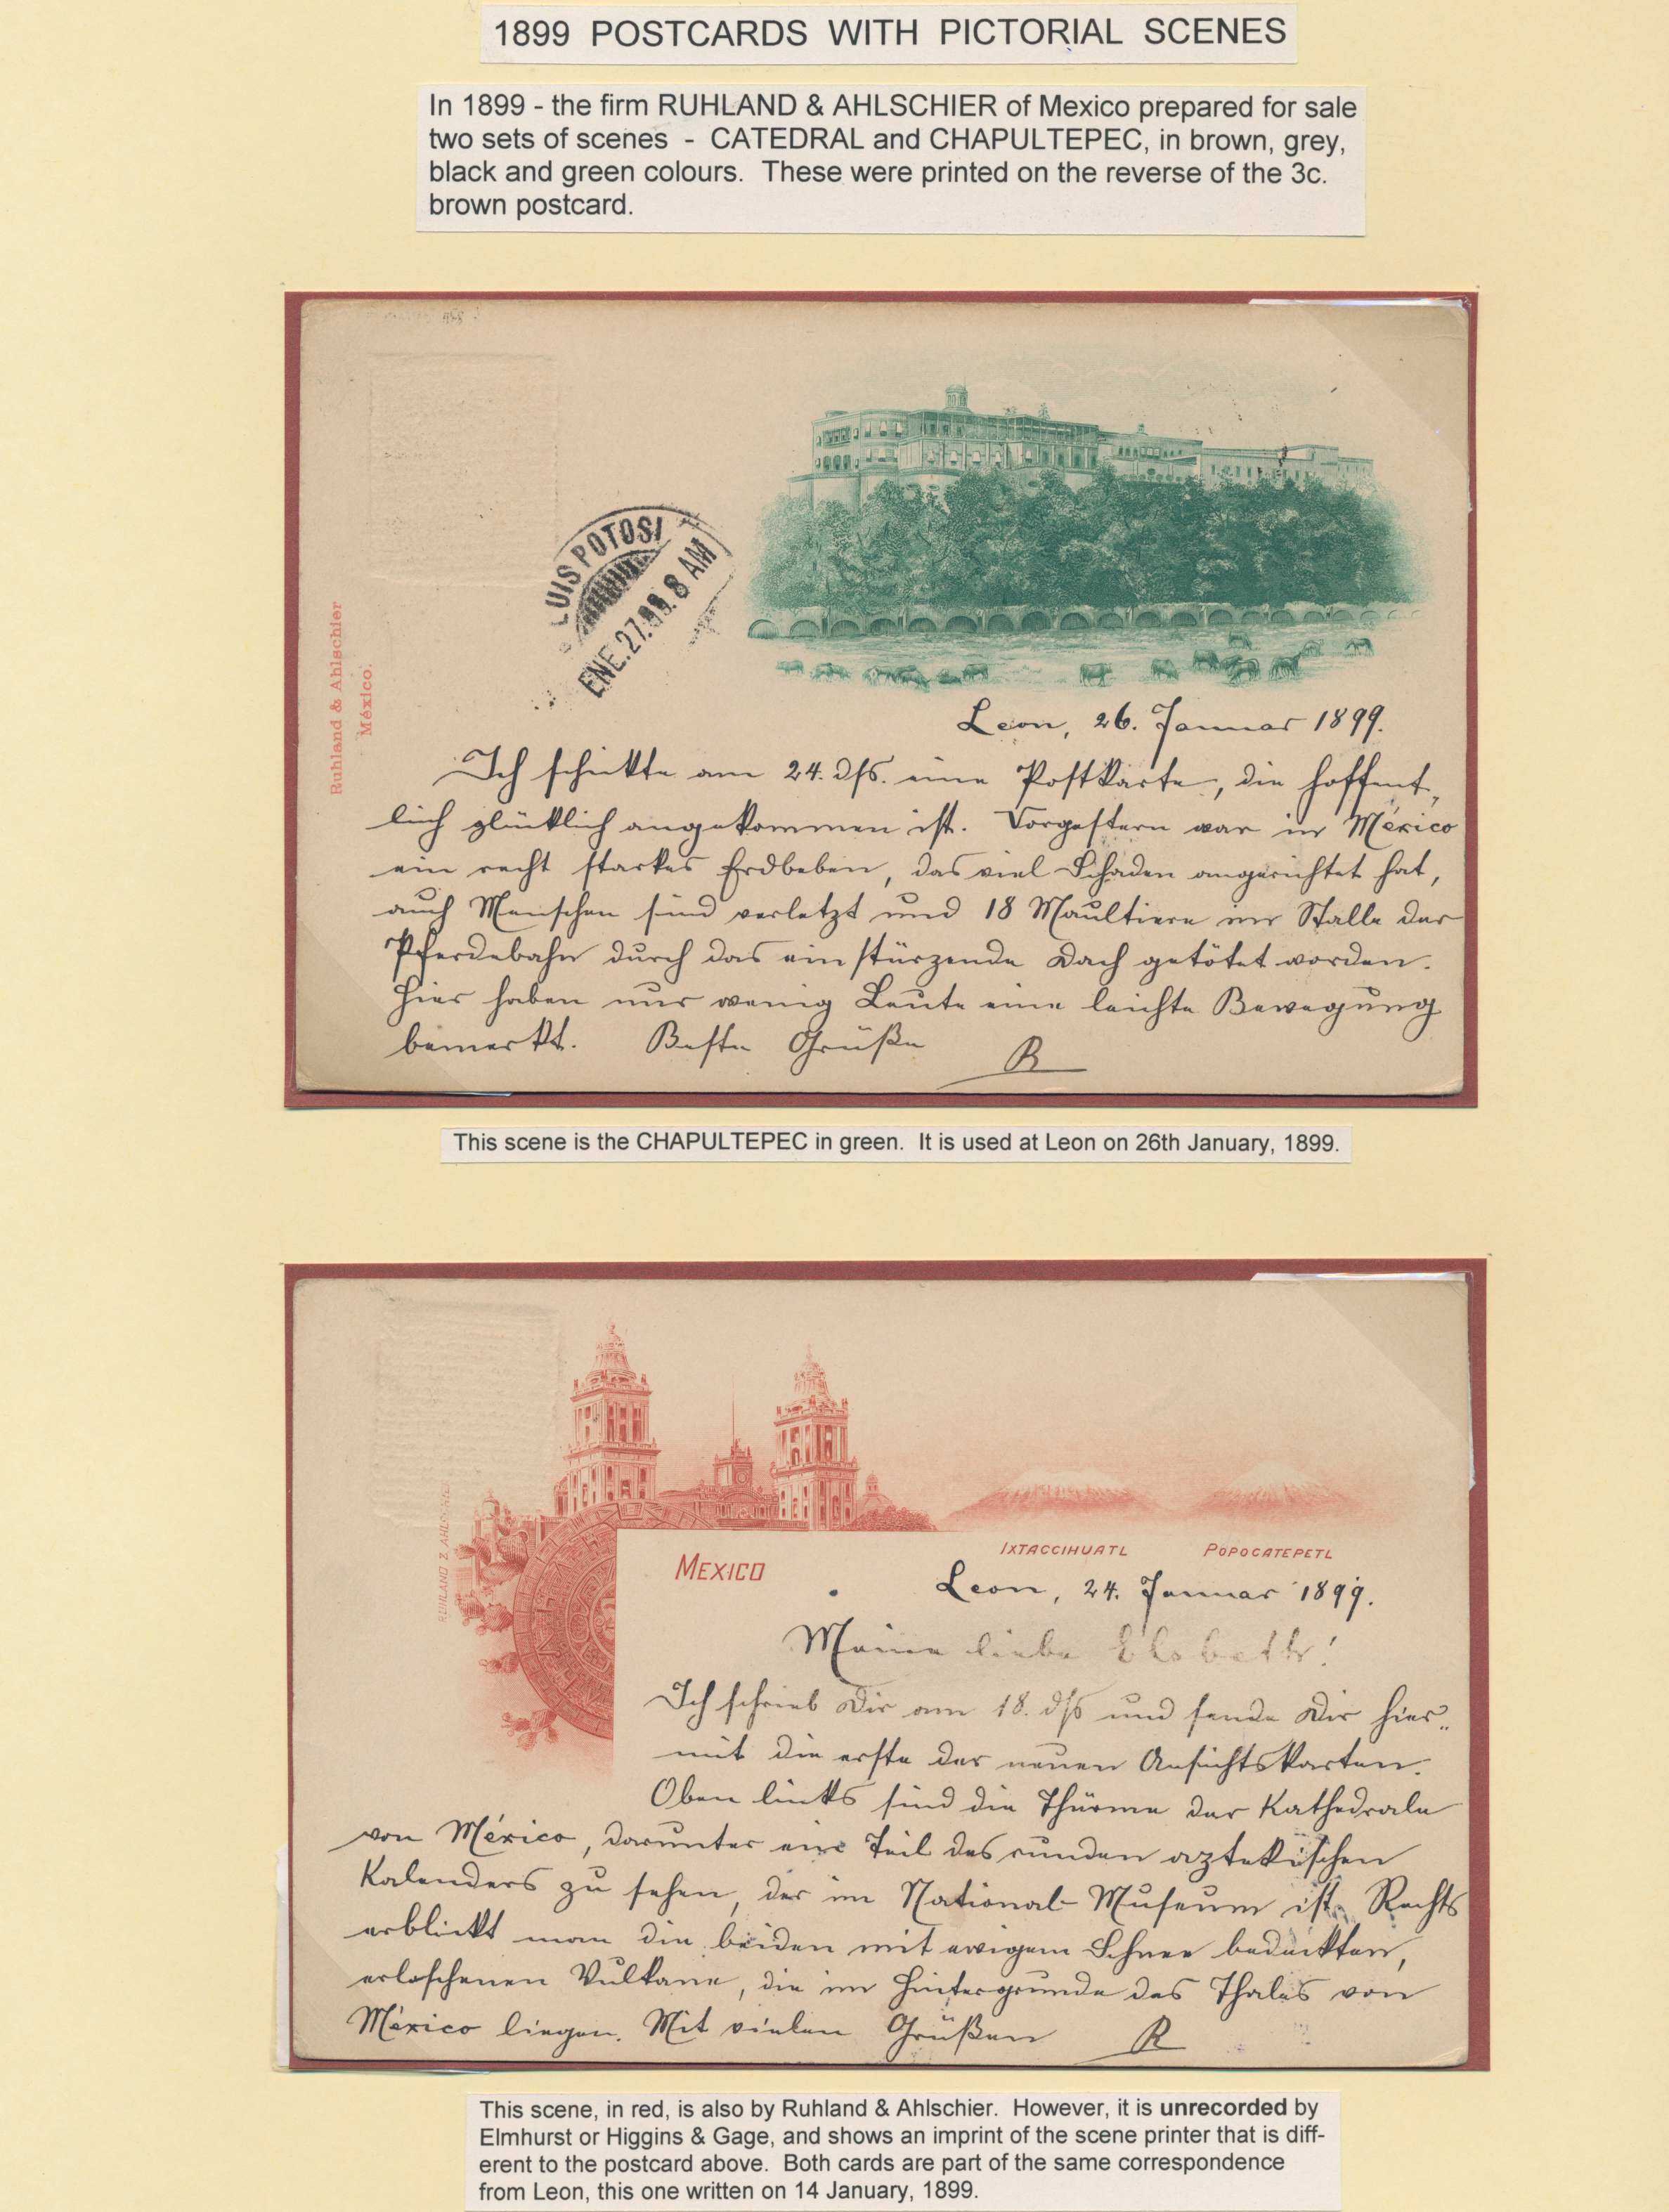 1899 POSTCARDS WITH PICTORIAL SCENES
In 1899 - the firm RUHLAND & AHLSCHIER of Mexico prepared for sale
two sets of scenes - CATEDRAL and CHAPULTEPEC, in brown, grey,
black and green colours. These were printed on the reverse of the 3c.
brown postcard.
LUIS POTOSI
ENE.27.99.8 AM
Ruhland & Ahlschier
México.
Leon, 26. Januar 1899.
Ich schickte am 24. dss. eine Postkarte, die hoffent,
lich glücklich angekommen ist. Vorgestern war in México
ein recht starkes Erdbeben, das viel Schaden angerichtet hat,
auch Menschen sind verletzt und 18 Maultiere im Stalle der
Pferdebahn durch das einstürzende Dach getötet worden.
Hier haben nur wenig Leute eine leichte Bewegung
bemerkt. Beste Grüße R
This scene is the CHAPULTEPEC in green. It is used at Leon on 26th January, 1899.
RUHLAND & AHLSCHIER
MEXICO
IXTACCIHUATL
POPOCATEPETL
Leon, 24. Januar 1899.
Meine liebe Elsbeth!
Ich schrieb Dir am 18. dss und sende Dir hier-
mit die erste der neuen Ansichtskarten.
Oben links sind die Thürme der Kathedrale
von México, darunter ein Teil des runden aztekischen
Kalenders zu sehen, der im National-Museum ist. Rechts
erblickt man die beiden mit ewigem Schnee bedeckten,
erloschenen Vulkane, die im Hintergrunde des Thales von
México liegen. Mit vielen Grüßen R
This scene, in red, is also by Ruhland & Ahlschier. However, it is unrecorded by
Elmhurst or Higgins & Gage, and shows an imprint of the scene printer that is diff-
erent to the postcard above. Both cards are part of the same correspondence
from Leon, this one written on 14 January, 1899.